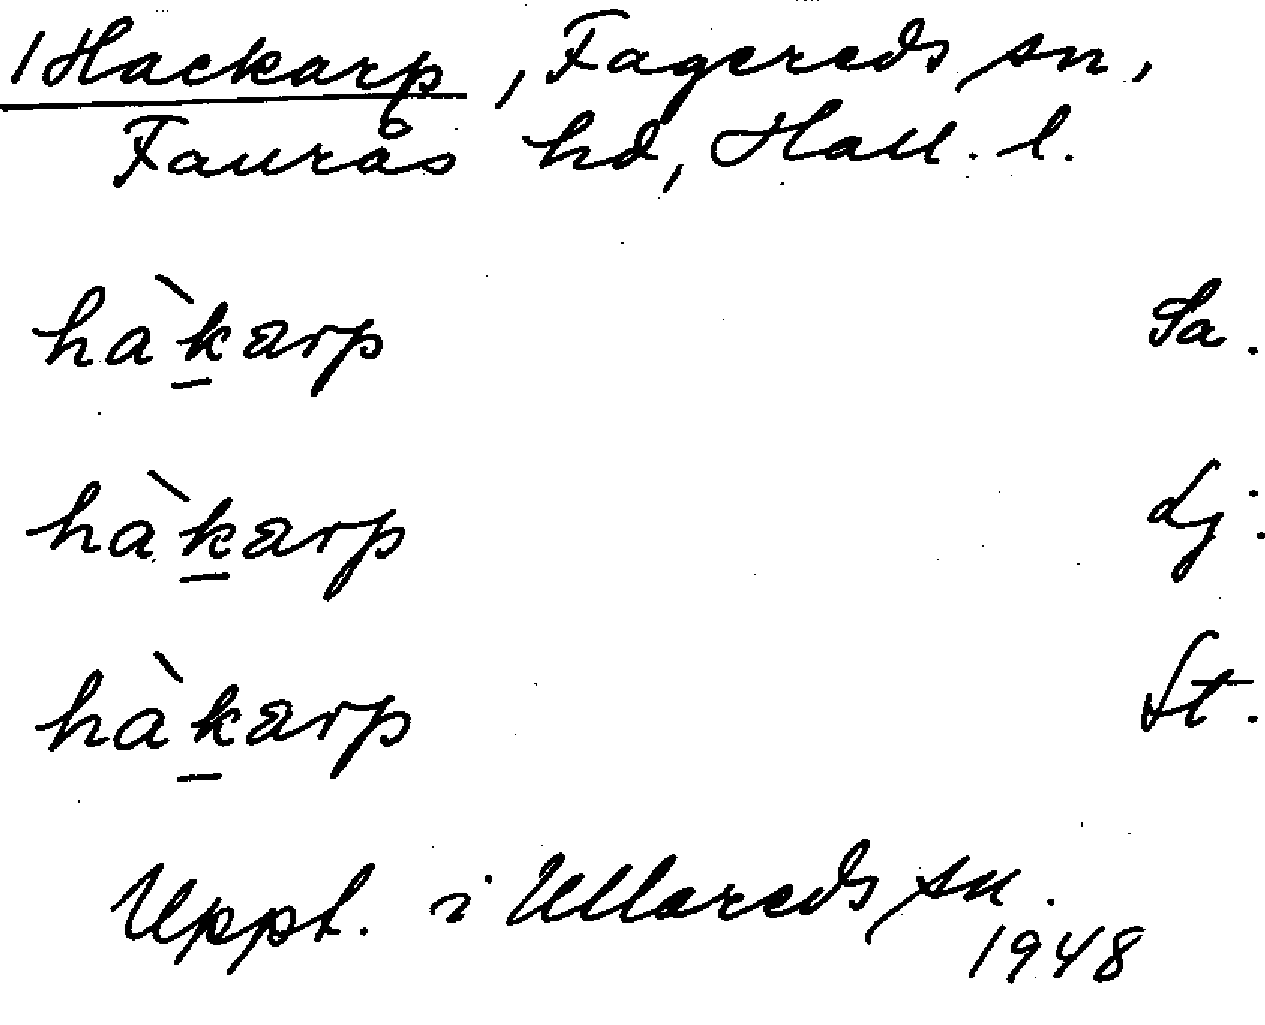 /Hackarp, Fagereds sn,
Faurås hd, Hall. l.
hàk̲arp Sa.
hàk̲arp Lj.
hàk̲arp St.
Uppt. i Ullareds sn.
1948